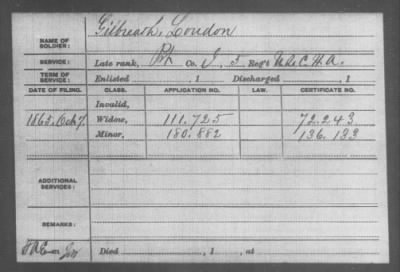 NAME OF SOLDIER: Gilbreath, London
SERVICE: Late rank, Pvt Co. I, 5 Reg't U.S.C.H.A.
TERM OF SERVICE: Enlisted , 1 Discharged , 1
DATE OF FILING. CLASS. APPLICATION NO. LAW. CERTIFICATE NO.
Invalid,
1865, Oct 7, Widow, 111.725 72.243
Minor, 180.882 136.133
ADDITIONAL SERVICES:
REMARKS:
Died , 1 , at